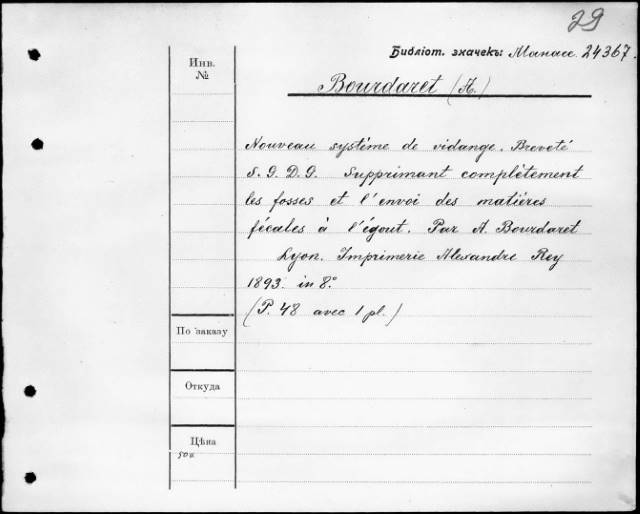 29
Библіот. значекъ: Манасс. 24367.
Инв.
№
Bourdaret (A.)
Nouveau système de vidange. Breveté
S. G. D. G. Supprimant complètement
les fosses et l'envoi des matières
fécales à l'égout. Par A. Bourdaret
Lyon. Imprimerie Alexandre Rey
1893. in 8.°
(P. 48 avec 1 pl.)
По заказу
Откуда
Цѣна